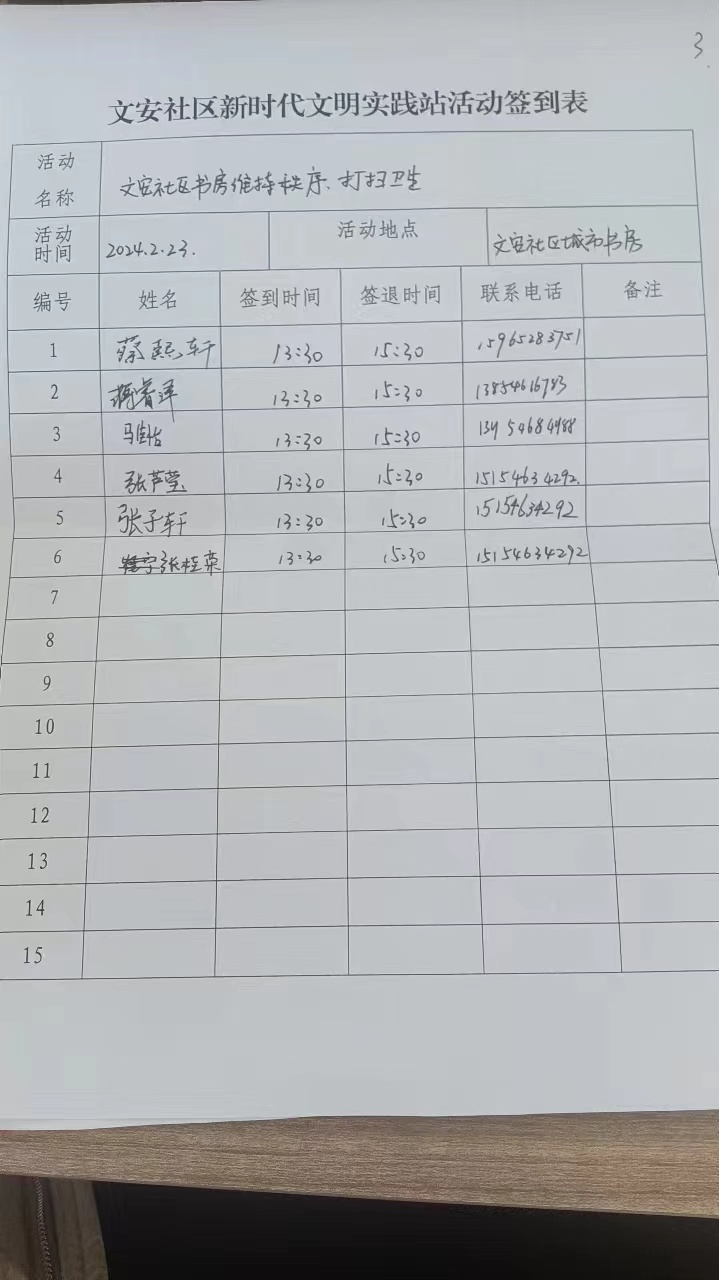 3
文安社区新时代文明实践站活动签到表
活动名称 文安社区书房维持秩序、打扫卫生
活动时间 2024.2.23. 活动地点 文安社区城市书房
编号 姓名 签到时间 签退时间 联系电话 备注
1 蔡熙轩 13:30 15:30 15965283751
2 睿泽 13:30 15:30 13854616783
3 马佳怡 13:30 15:30 54684988
4 张芦莹 13:30 15:30 15154634292.
5 张子轩 13:30 15:30 15154634292
6 张桂荣 13:30 15:30 15154634292
7
8
9
10
11
12
13
14
15